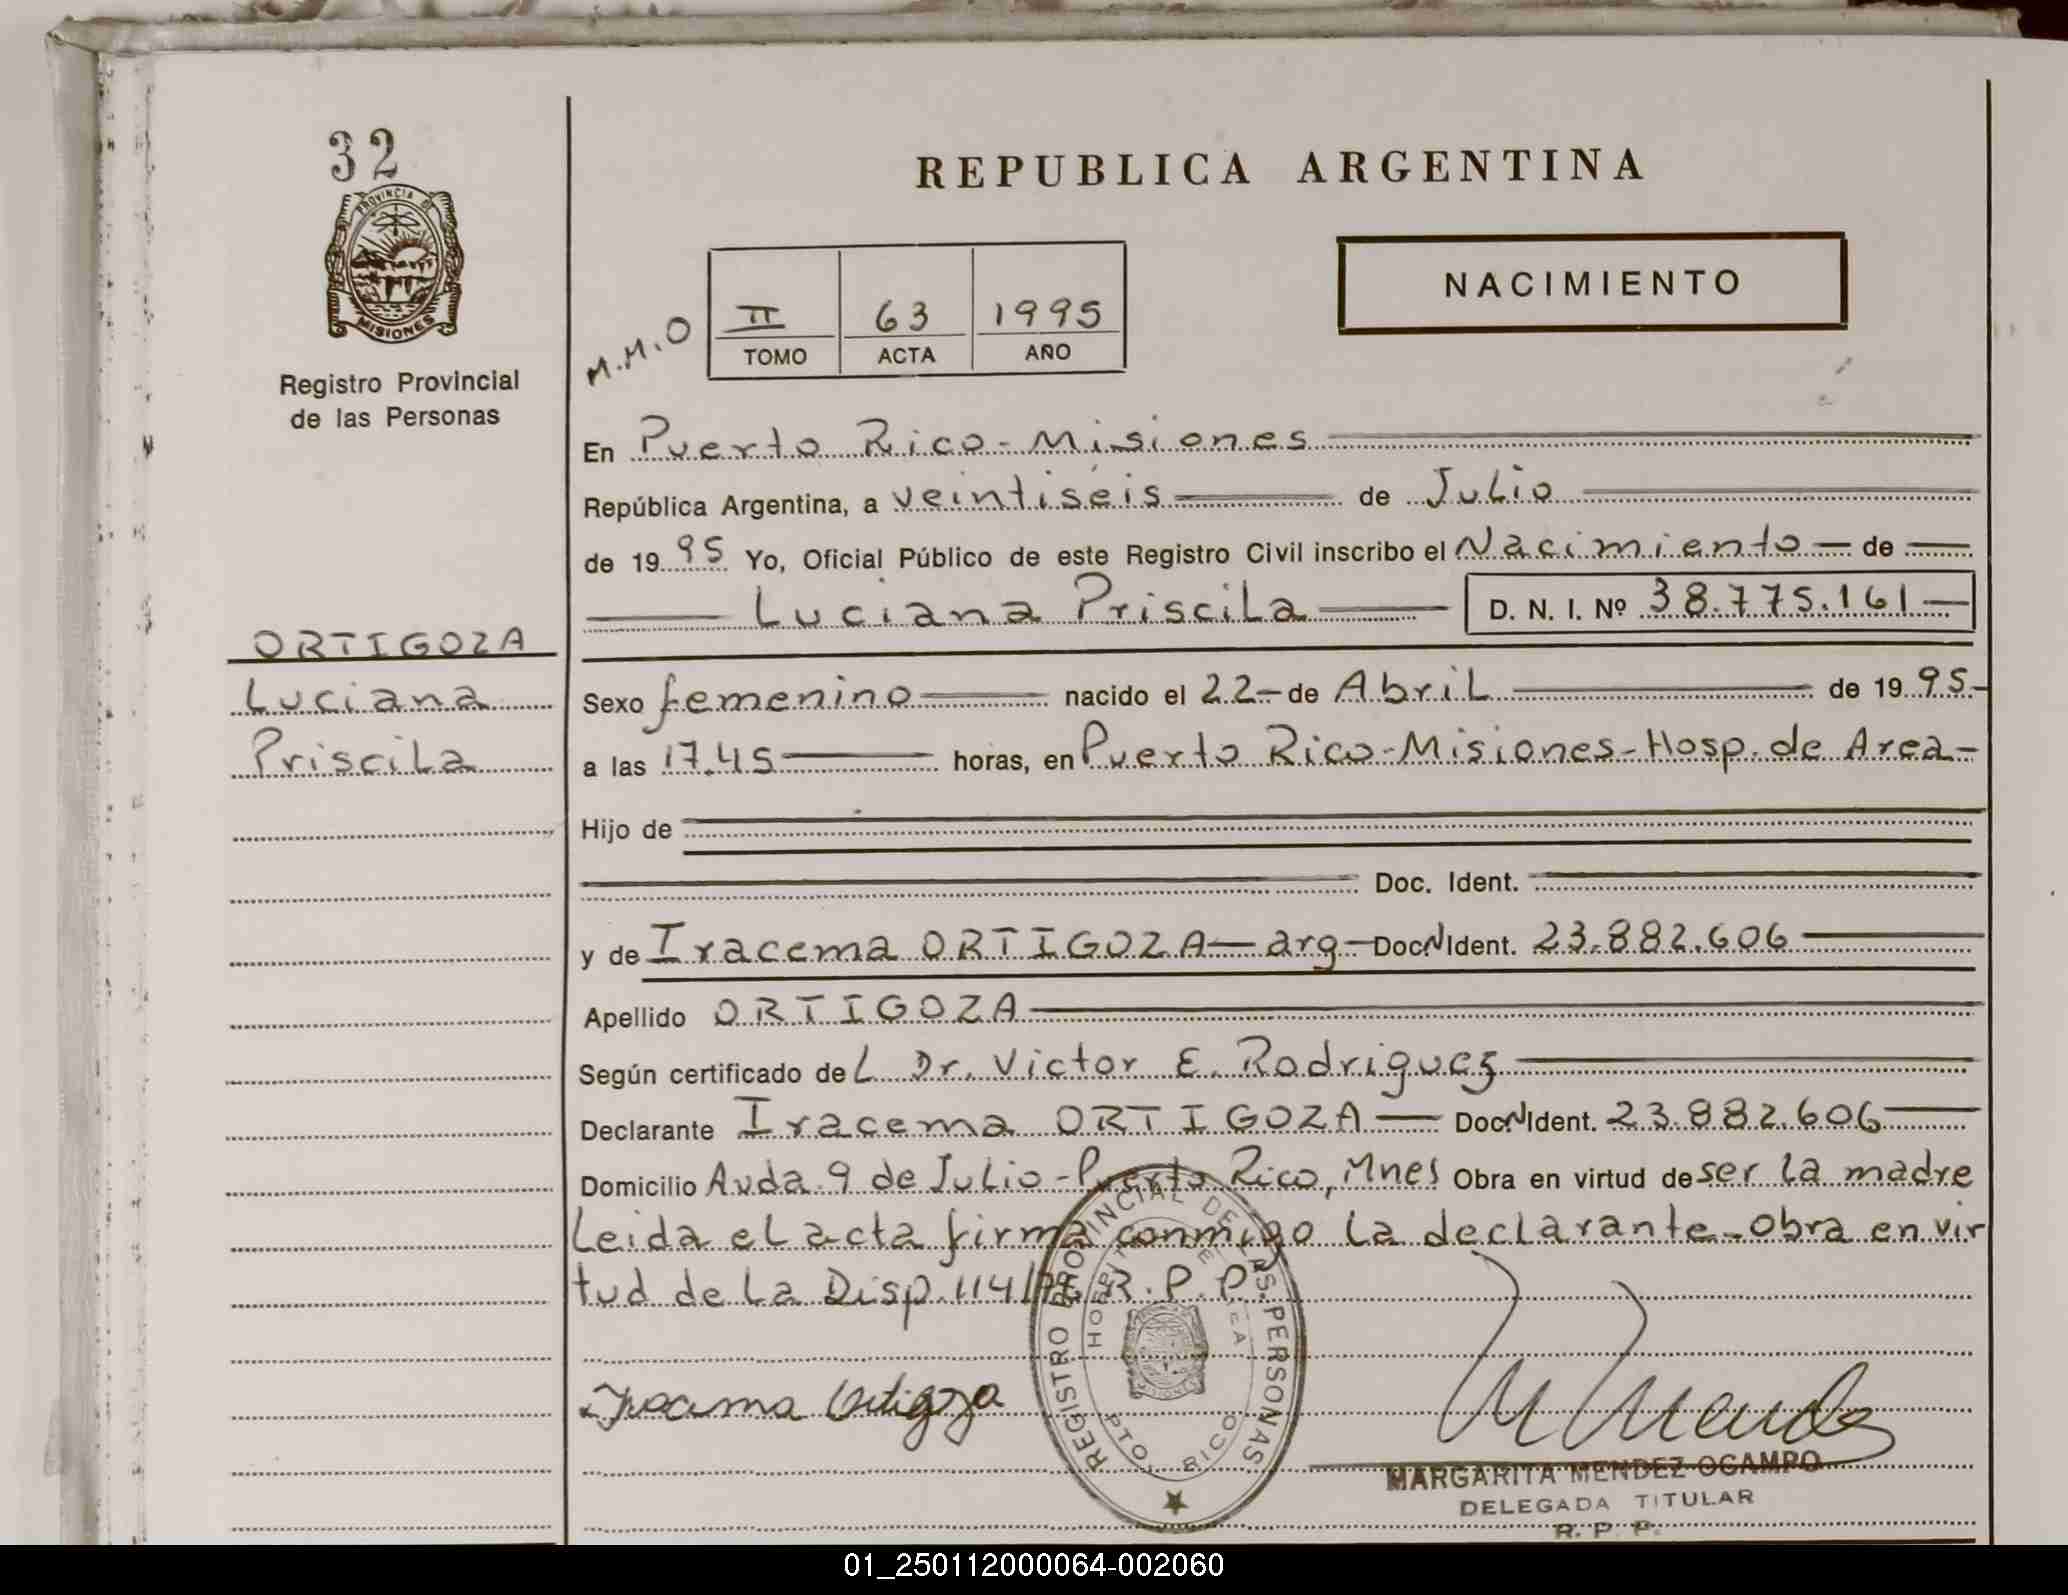 32
PROVINCIA DE
MISIONES
Registro Provincial
de las Personas
REPUBLICA ARGENTINA
NACIMIENTO
M.M.O
II 63 1995
TOMO ACTA AÑO
En Puerto Rico - Misiones
República Argentina, a veintiséis de Julio
de 1995 Yo, Oficial Público de este Registro Civil inscribo el Nacimiento de
Luciana Priscila D. N. I. Nº 38.775.161
ORTIGOZA
Luciana
Priscila
Sexo femenino nacido el 22 de Abril de 1995.
a las 17.45 horas, en Puerto Rico-Misiones-Hosp. de Area-
Hijo de
Doc. Ident.
y de Iracema ORTIGOZA - arg - Doc. N Ident. 23.882.606
Apellido ORTIGOZA
Según certificado del Dr. Victor E. Rodriguez
Declarante Iracema ORTIGOZA Doc. N Ident. 23.882.606
Domicilio Avda. 9 de Julio - Puerto Rico, Mnes Obra en virtud de ser la madre
Leida el acta firma conmigo la declarante - Obra en vir
tud de la Disp. 114/ R.P.P.
Iracema Ortigoza
REGISTRO PROVINCIAL DE LAS PERSONAS
PTO. RICO
MISIONES
M Mendez
MARGARITA MENDEZ OCAMPO
DELEGADA TITULAR
R. P. P.
01_250112000064-002060